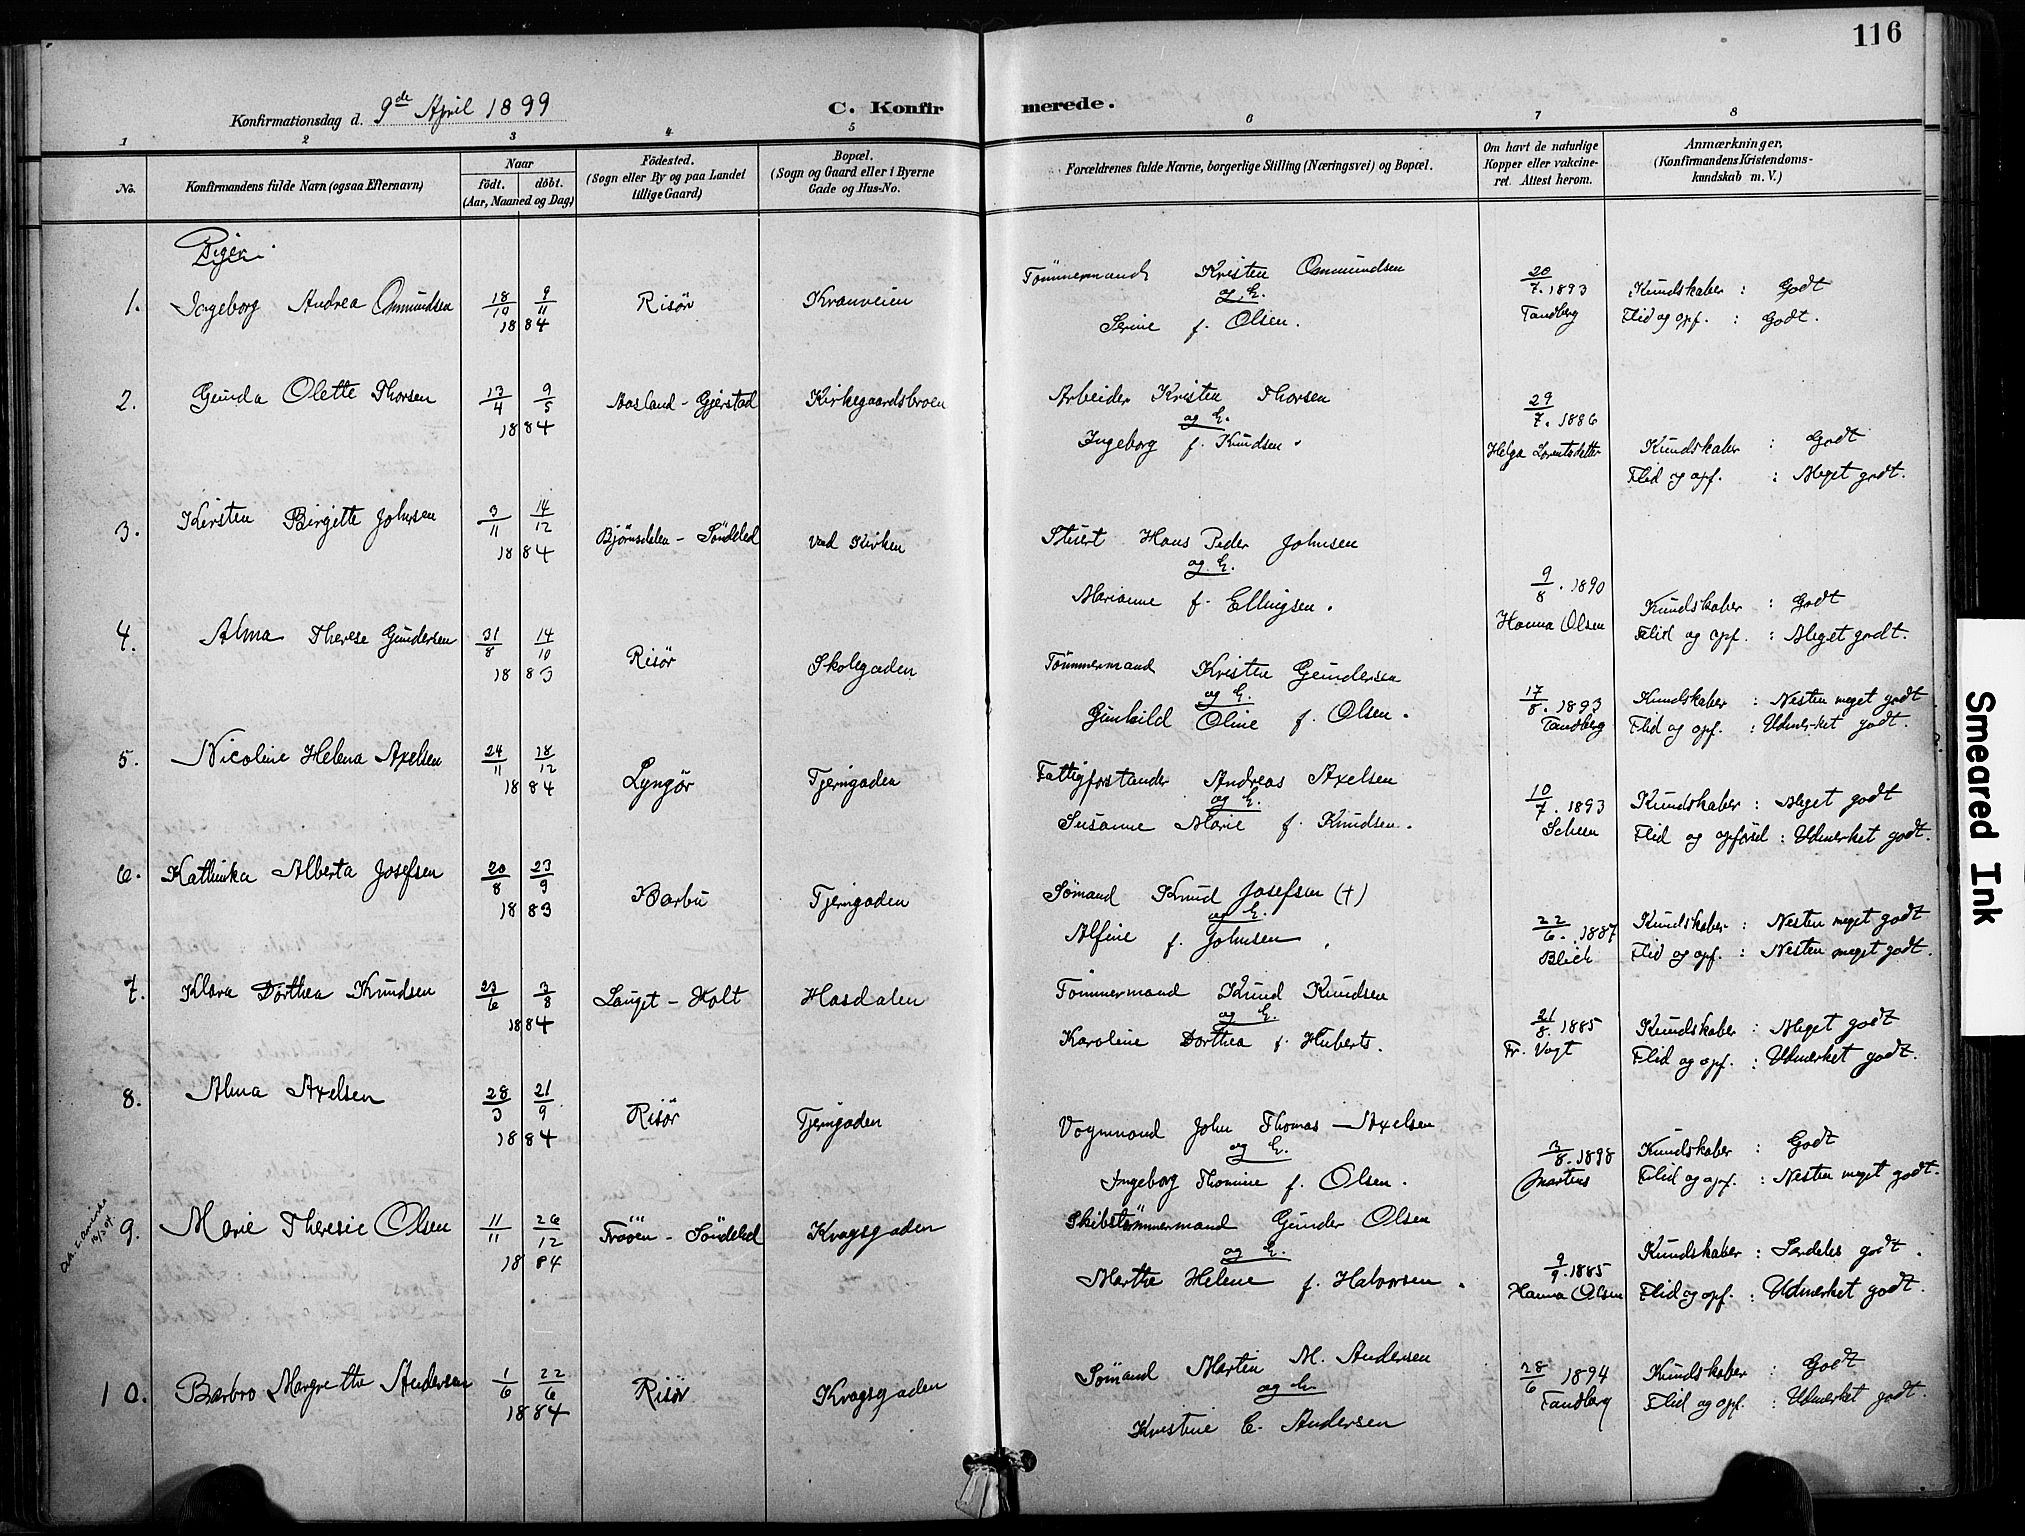 116
Konfirmationsdag d. 9de April 1899
C. Konfirmerede.
1 2 3 4 5 6 7 8
No.
Konfirmandens fulde Navn (ogsaa Efternavn)
Naar
födt. döbt.
(Aar, Maaned og Dag)
Födested.
(Sogn eller By og paa Landet
tillige Gaard)
Bopæl.
(Sogn og Gaard eller i Byerne
Gade og Hus-No.
Forældrenes fulde Navne, borgerlige Stilling (Næringsvei) og Bopæl.
Om havt de naturlige
Kopper eller vakcine-
ret. Attest herom.
Anmærkninger,
(Konfirmandens Kristendoms-
kundskab m. V.)
Piger.
1. Ingeborg Andrea Osmundsen 18/10 9/11 1884 Risør Kranveien
Tömmermand Kristen Osmundsen
og E.
Serine f. Olsen.
20/7. 1893
Tandberg
Kundskaber : Godt
Flid og opf. : Godt.
2. Gunda Olette Thorsen 13/4 9/5 1884 Aasland - Gjerstad Kirkegaardsbroen
Arbeider Kristen Thorsen
og E.
Ingeborg f. Knudsen.
29/7. 1886
Helga Lorentsdatter
Kundskaber : Godt
Flid og opf. : Meget godt.
3. Kirsten Birgitte Johnsen 3/11 14/12 1884 Bjørnsdalen - Söndeled Ved Kirken
Stuert Hans Peder Johnsen
og E.
Marianne f. Ellingsen.
9/8. 1890
Hanna Olsen
Kundskaber : Godt
Flid og opf. : Meget godt.
4. Alma Therese Gundersen 31/8 14/10 1883 Risør Skolegaden
Tömmermand Kristen Gundersen
og E.
Gunhild Oline f. Olsen.
17/8. 1893
Tandberg
Kundskaber : Nesten meget godt
Flid og opf. : Udmerket godt.
5. Nicoline Helena Axelsen 24/11 18/12 1884 Lyngör Tjerngaden
Fattigforstander Andreas Axelsen
og E.
Susanne Marie f. Knudsen.
10/7. 1893
Scheen
Kundskaber : Meget godt
Flid og opførsel : Udmerket godt.
6. Kathinka Alberta Josefsen 20/8 23/9 1883 Barbu Tjerngaden
Sømand Knud Josefsen (+)
og E.
Alfine f. Johnsen
22/6. 1887
Blich
Kundskaber : Nesten meget godt
Flid og opf. : Nesten meget godt.
7. Klara Dorthea Knudsen 23/6 3/8 1884 Lauget - Holt Hasdalen
Tömmermand Knud Knudsen
og E.
Karoline Dorthea f. Huberts.
21/8. 1885
Fr. Vogt
Kundskaber : Meget godt
Flid og opf. : Udmerket godt.
8. Alma Axelsen 28/3 21/9 1884 Risør Tjerngaden
Vognmand John Thomas Axelsen
og E.
Ingeborg Thomine f. Olsen.
3/8. 1898
Martens
Kundskaber : Godt
Flid og opf. : Nesten meget godt.
9. Marie Theresie Olsen 11/11 26/12 1884 Tröen - Söndeled Kragsgaden
Skibstömmermand Gunder Olsen
og E.
Marthe Helene f. Halvorsen.
9/9. 1885
Hanna Olsen
Kundskaber : Særdeles godt.
Flid og opf. : Udmerket godt.
10. Barbro Margrethe Andersen 1/6 22/6 1884 Risør Kragsgaden
Sømand Martin M. Andersen
og E.
Kristine E. Andersen
28/6 1894
Tandberg
Kundskaber : Godt
Flid og opf. : Udmerket godt.
Smeared Ink